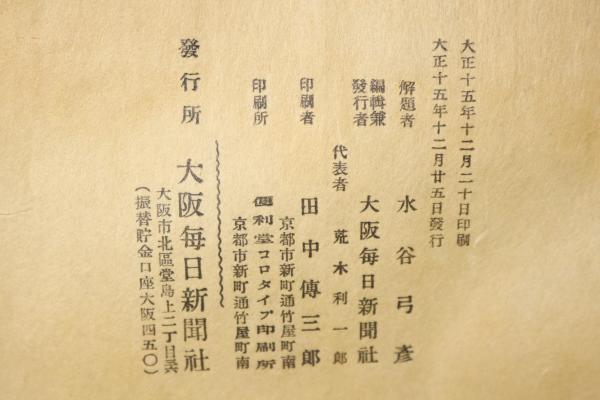 大正十五年十二月二十日印刷
大正十五年十二月廿五日發行
解題者 水谷弓彥
編輯兼發行者 大阪每日新聞社
代表者 荒木利一郎
印刷者 田中傳三郎
京都市新町通竹屋町南
印刷所 便利堂コロタイプ印刷所
京都市新町通竹屋町南
發行所 大阪每日新聞社
大阪市北區堂島上二丁目
(振替貯金口座大阪四五〇)